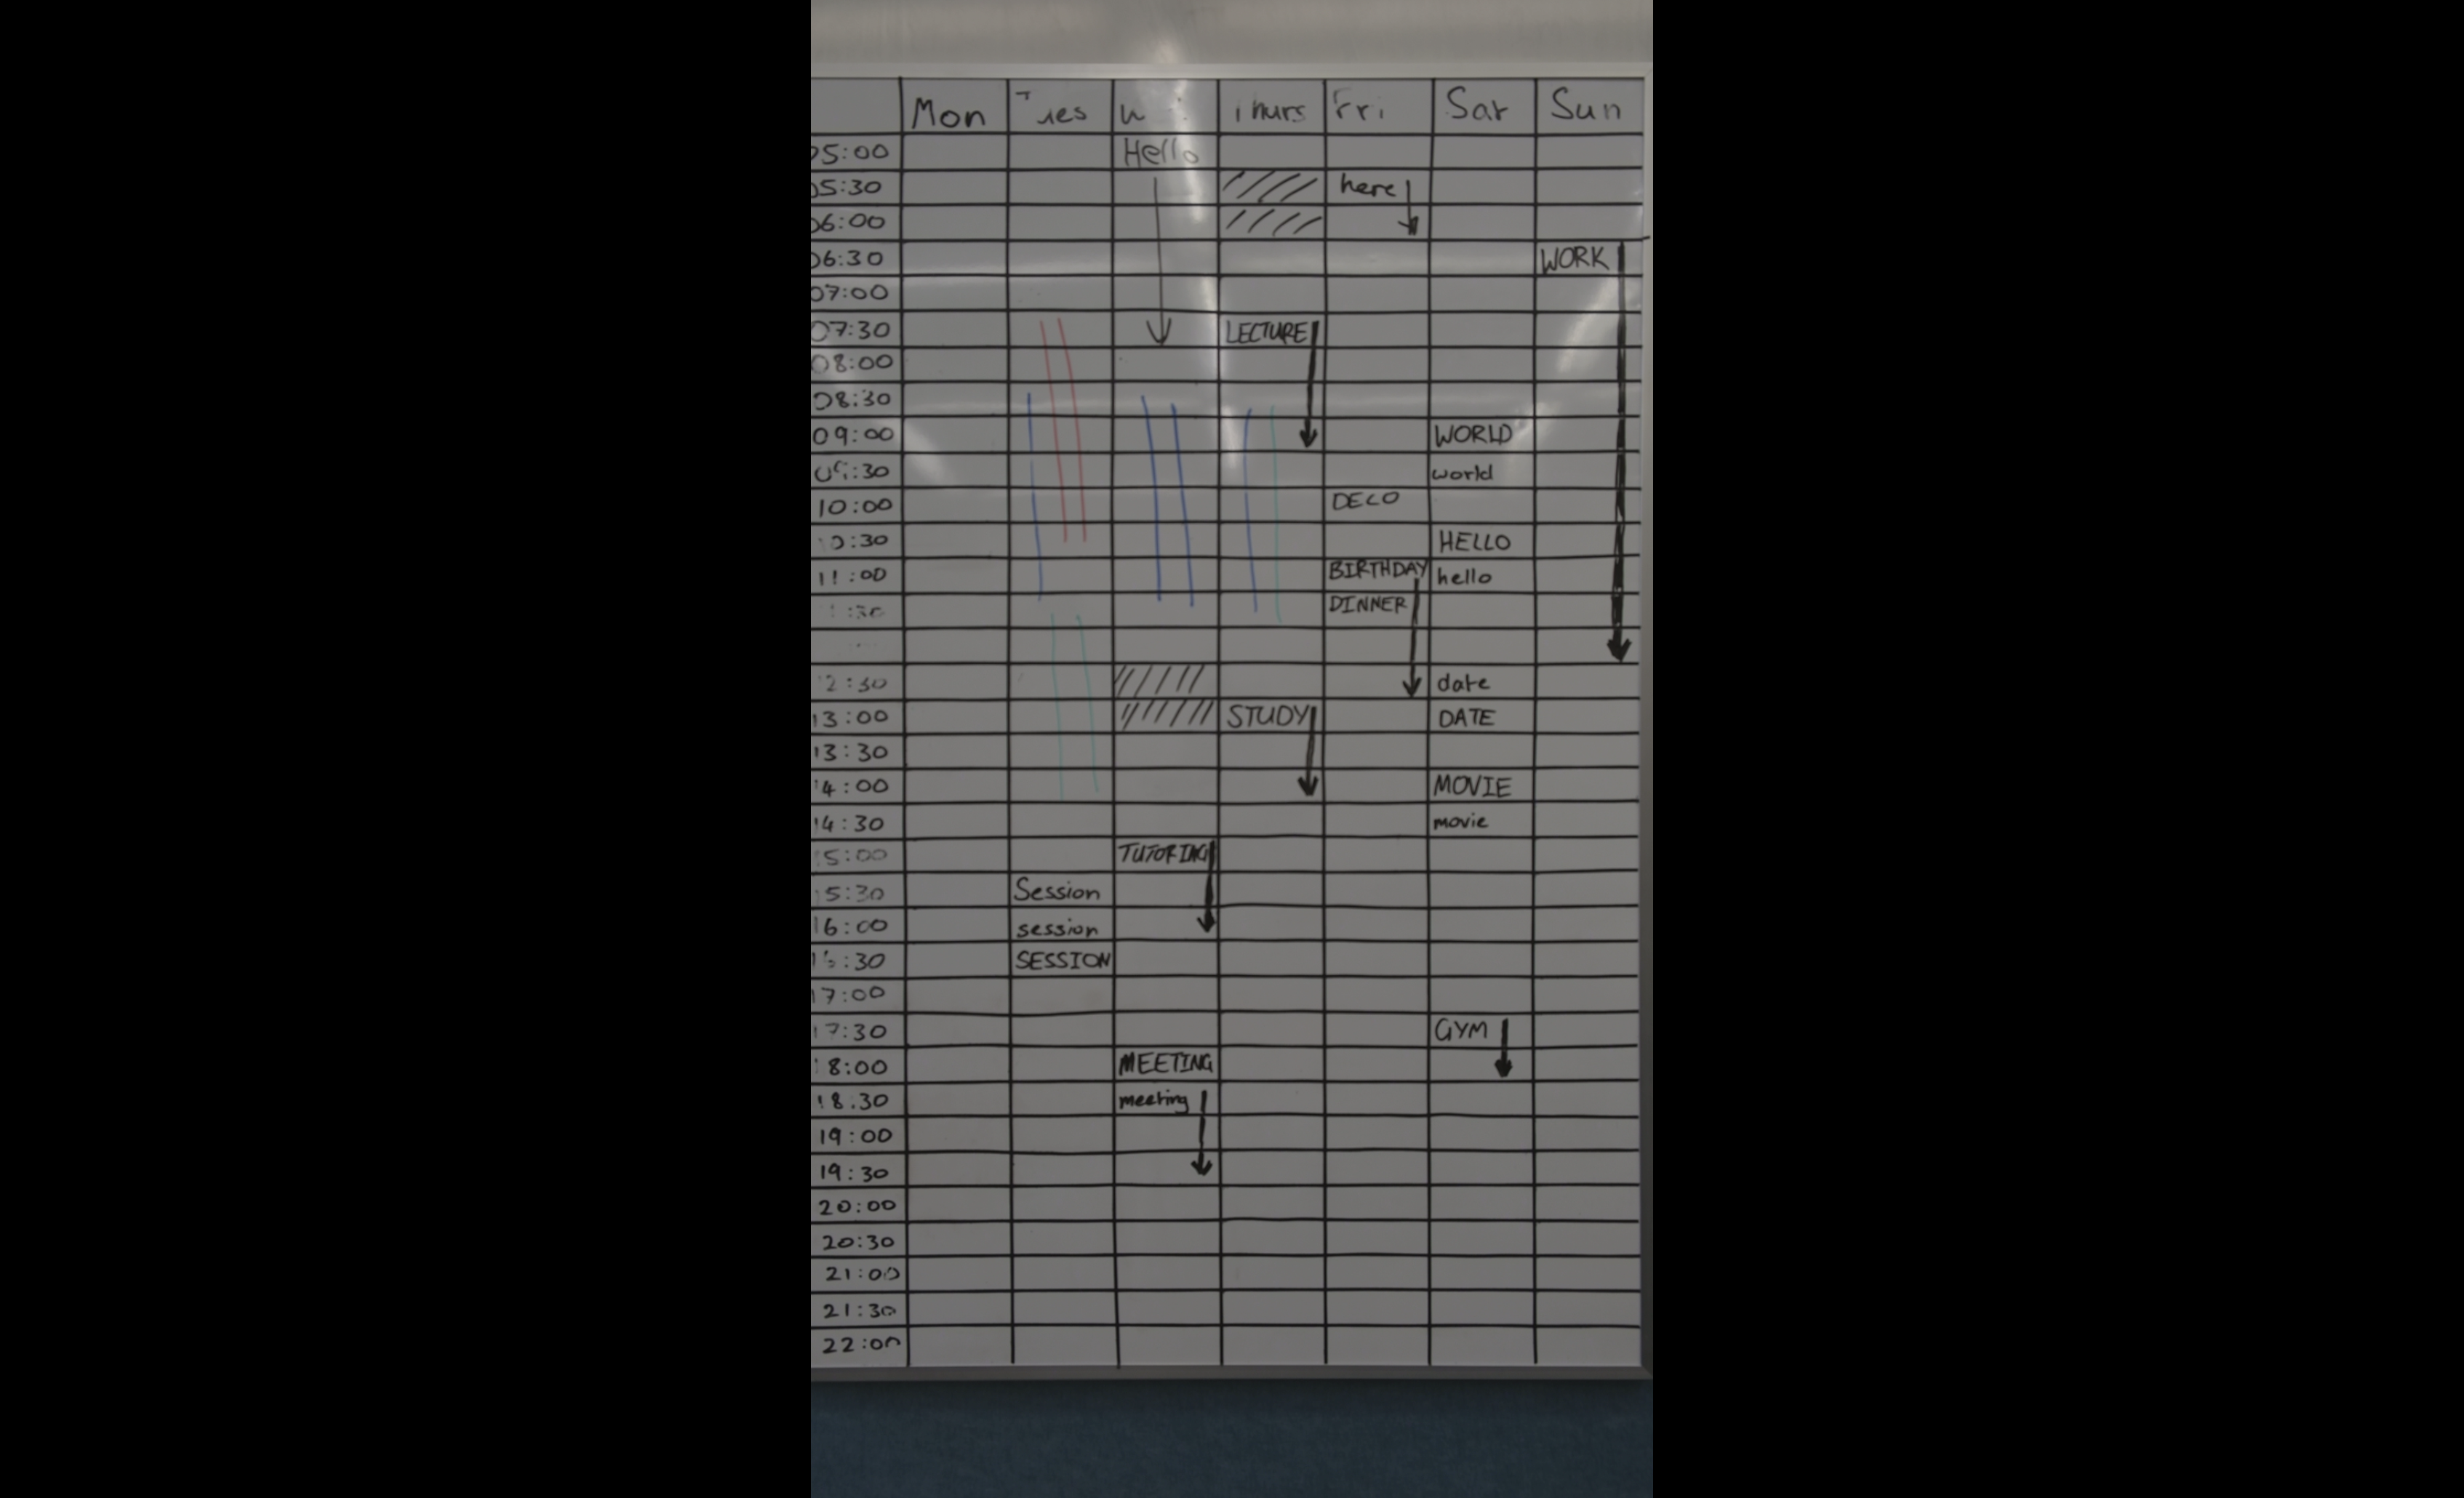 Mon Sat Sun
05:00 Hello
05:30 here
06:00
06:30 WORK
07:00
07:30 LECTURE
08:00
08:30
09:00 WORLD
world
10:00 DECO
HELLO
11:00 BIRTHDAY hello
DINNER
date
13:00 STUDY DATE
13:30
14:00 MOVIE
14:30 movie
15:00 TUTORING
15:30 Session
16:00 session
16:30 SESSION
17:00
17:30 GYM
18:00 MEETING
18:30 meeting
19:00
19:30
20:00
20:30
21:00
21:30
22:00